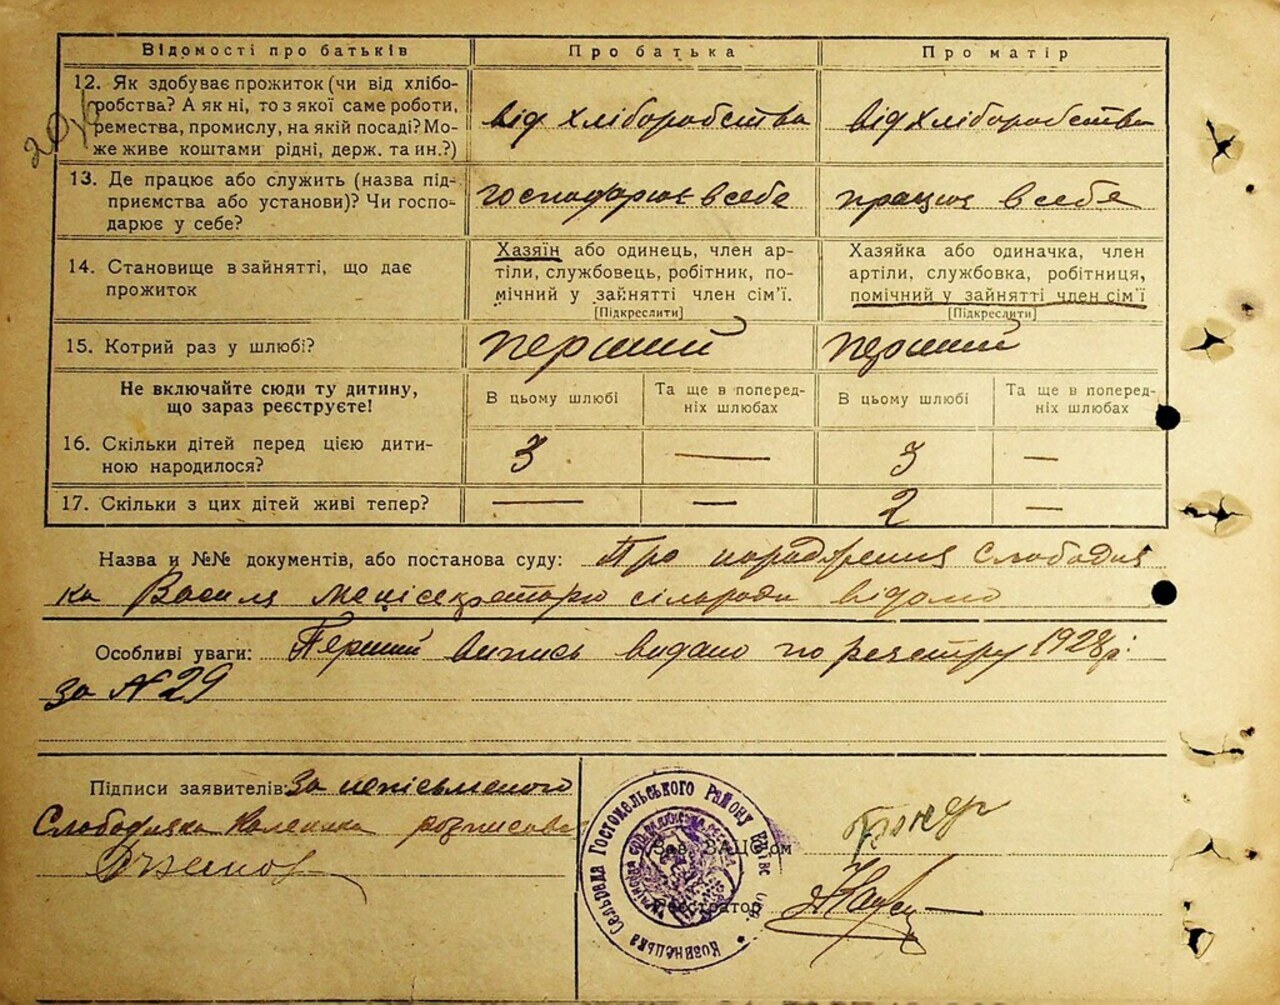 Відомості про батьків
Про батька
Про матір
12. Як здобуває прожиток (чи від хлібо-
робства? А як ні, то з якої саме роботи,
ремества, промислу, на якій посаді? Мо-
же живе коштами рідні, держ. та ин.?)
від хліборобства
від хліборобства
13. Де працює або служить (назва під-
приємства або установи)? Чи госпо-
дарює у себе?
господарює в себе
працює в себе
14. Становище в зайнятті, що дає
прожиток
Хазяїн або одинець, член ар-
тіли, службовець, робітник, по-
мічний у зайнятті член сім'ї.
[Підкреслити]
Хазяйка або одиначка, член
артіли, службовка, робітниця,
помічний у зайнятті член сім'ї
[Підкреслити]
15. Котрий раз у шлюбі?
перший
перший
Не включайте сюди ту дитину,
що зараз реєструєте!
В цьому шлюбі
Та ще в поперед-
ніх шлюбах
В цьому шлюбі
Та ще в поперед-
ніх шлюбах
16. Скільки дітей перед цією дити-
ною народилося?
3
—
3
—
17. Скільки з цих дітей живі тепер?
—
—
2
—
Назва и №№ документів, або постанова суду: Про народження Слободян
ка Василя мені секретарю сільради відомо
Особливі уваги: Перший випись видано по реєстру 1928 р.
за № 29
Підписи заявителів: За неписьменого
Слободяника Каленика розписався
Зав. ЗАЦС'ом
Реєстратор
Сельрада Гостомельського Району Київс